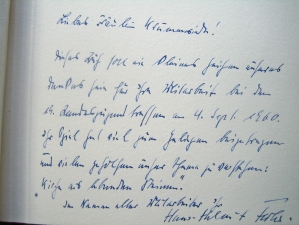 Liebes Fräulein
Dieses Buch soll ein kleines Zeichen unseres
Dankes sein für Ihre Mitarbeit bei dem
Landesjugendtreffen am 4. Sept. 1960.
Ihr Spiel hat viel zum Gelingen beigetragen
und vielen geholfen unser Thema zu verstehen:
Kirche aus lebenden Steinen.
Im Namen aller Mitarbeiter Ihr
Hans-Helmut